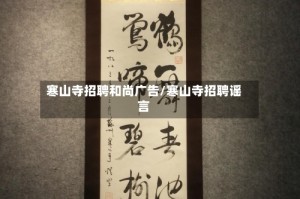 寒山寺招聘和尚广告/寒山寺招聘谣
言
鶴舞春池
鶯啼碧樹